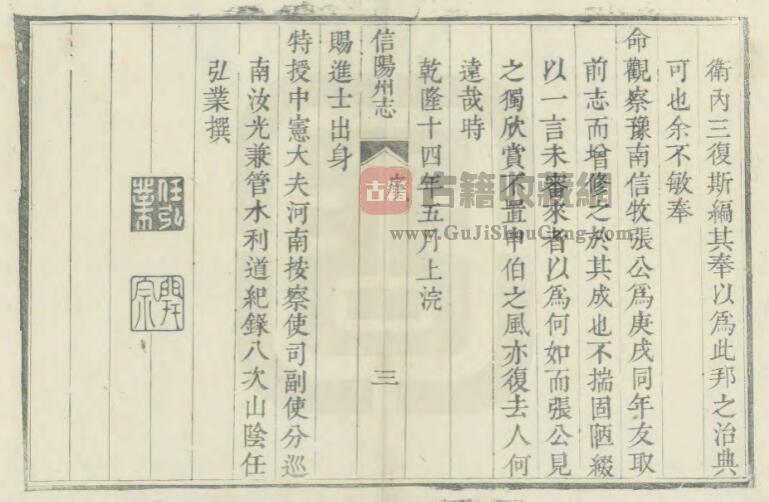 衛內三復斯編其奉以爲此邦之治典
可也余不敏奉
命觀察豫南信牧張公爲庚戌同年友取
前志而增修之於其成也不揣固陋綴
以一言未審來者以爲何如而張公見
之獨欣賞不置申伯之風亦復去人何
遠哉時
乾隆十四年五月上浣
信陽州志
序
三
賜進士出身
特授中憲大夫河南按察使司副使分巡
南汝光兼管水利道紀錄八次山陰任
弘業撰
任弘業
開宗
古籍
古籍收藏網
www.GuJiShouCang.com